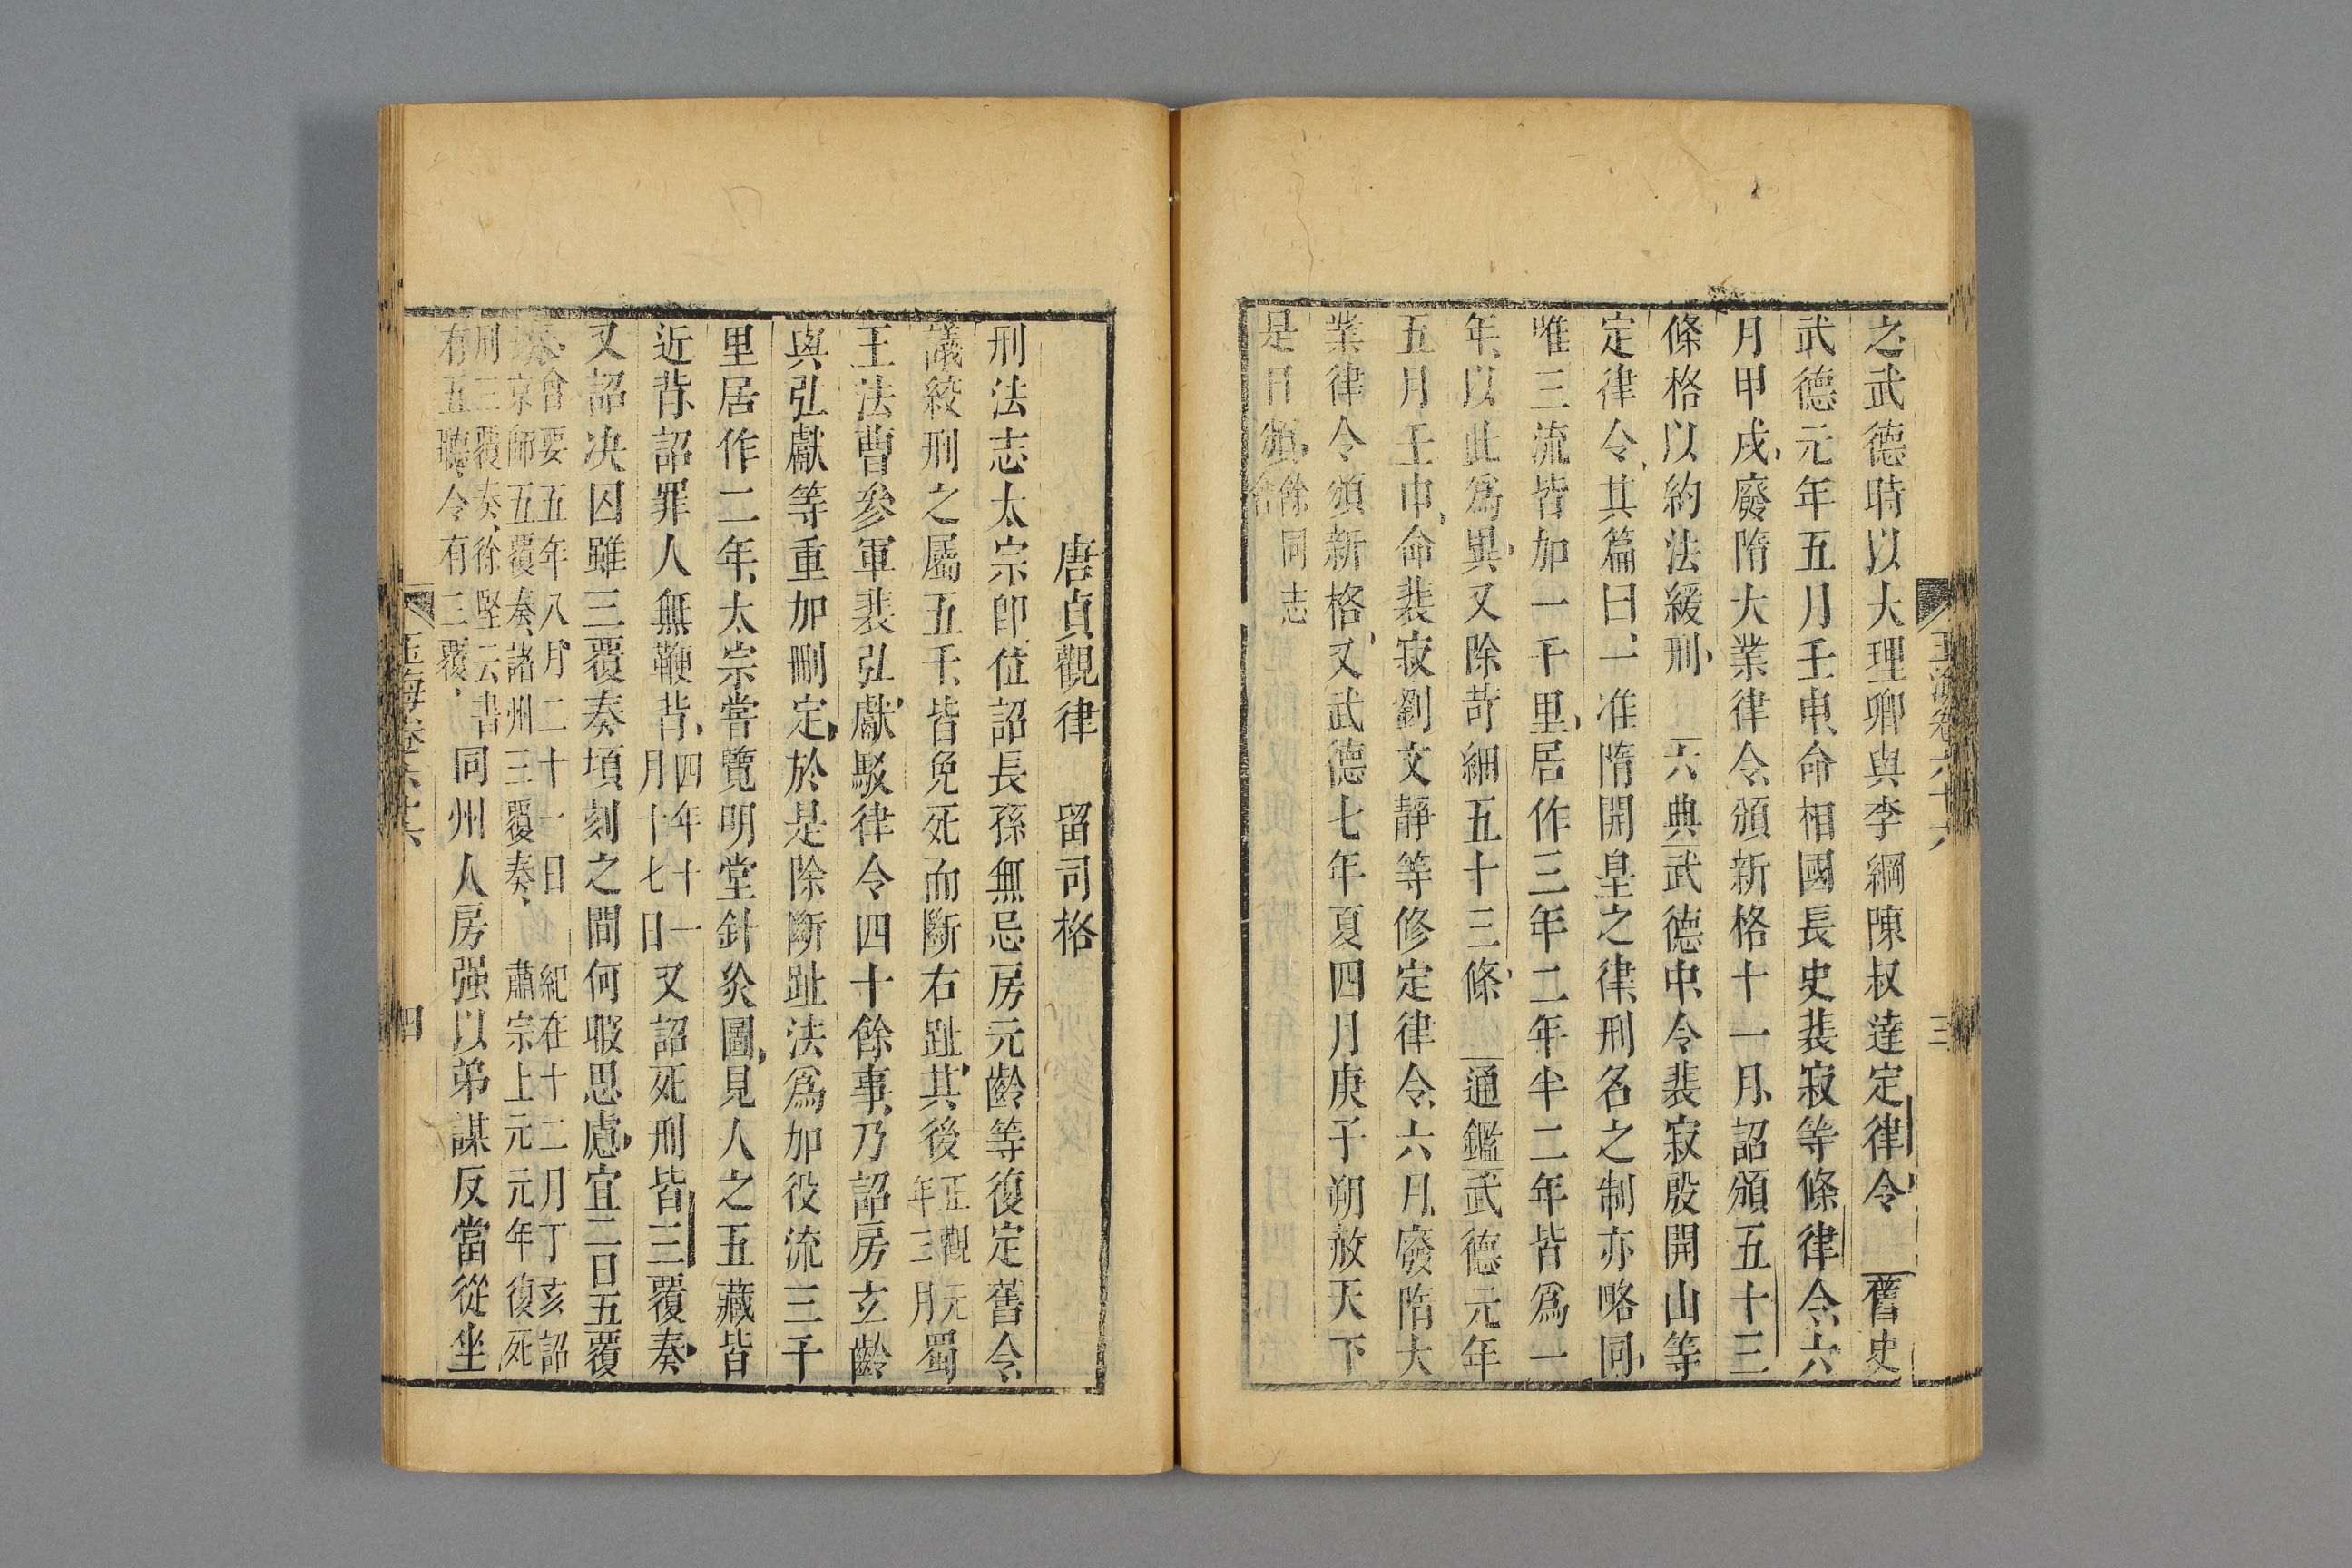 玉海卷六十六
三
之武德時以大理卿與李綱陳叔達定律令　舊史
武德元年五月壬申命相國長史裴寂等條律令六
月甲戌廢隋大業律令頒新格十一月詔頒五十三
條格以約法緩刑　六典武德中令裴寂殷開山等
定律令其篇目一准隋開皇之律刑名之制亦略同
唯三流皆加一千里居作三年二年半二年皆爲一
年以此爲異又除苛細五十三條　通鑑武德元年
五月壬申命裴寂劉文靜等修定律令六月廢隋大
業律令頒新格又武德七年夏四月庚子朔赦天下
是日頒
餘同志
唐貞觀律　留司格
刑法志太宗卽位詔長孫無忌房元齡等復定舊令
議絞刑之屬五千皆免死而斷右趾其後
正觀元
年三月
蜀
王法曹參軍裴弘獻駁律令四十餘事乃詔房玄齡
與弘獻等重加刪定於是除斷趾法爲加役流三千
里居作二年太宗嘗覽明堂針灸圖見人之五藏皆
近背詔罪人無鞭背
四年十一
月十七日
又詔死刑皆三覆奏
又詔决囚雖三覆奏頃刻之間何暇思慮宜二日五覆
奏
會要五年八月二十一日　紀在十二月丁亥詔
京師五覆奏諸州三覆奏　肅宗上元元年復死
刑三覆奏徐堅云書
有五聽令有三覆
同州人房强以弟謀反當從坐
玉海卷六十六
四